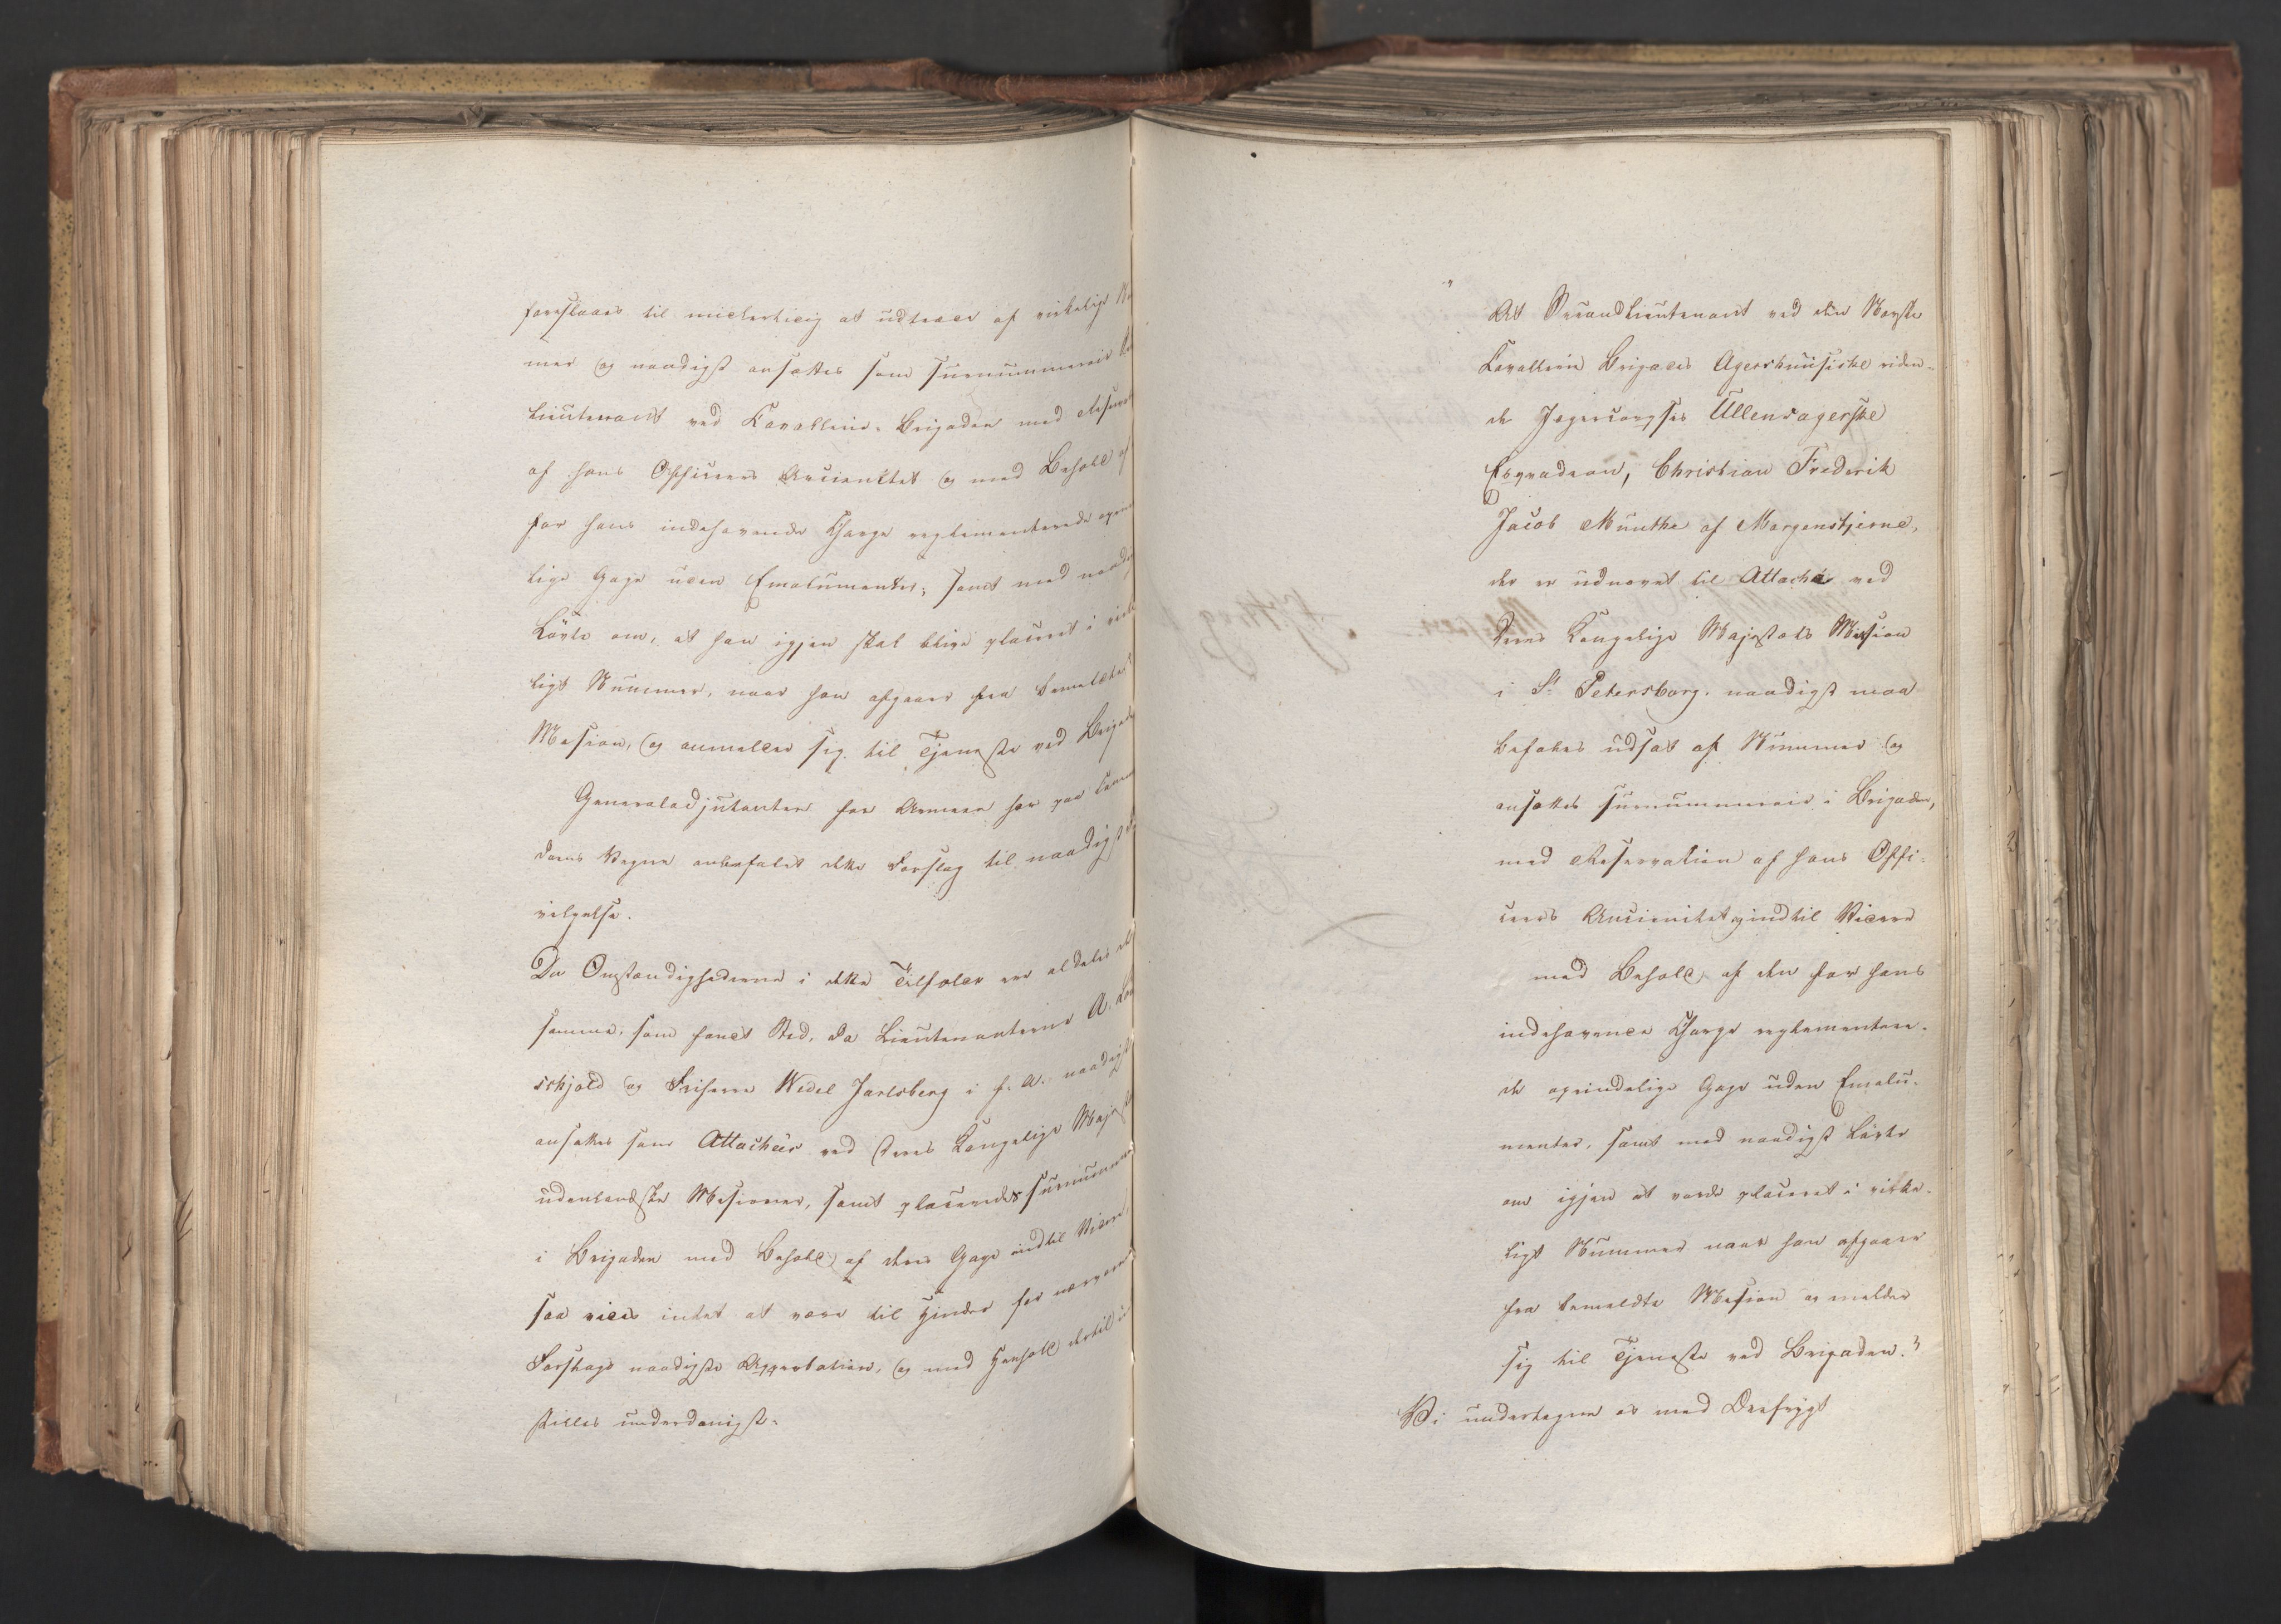 foreslaaes til midlertidig at udtræde af virkelige
mer og naadigst ansættes som surnummerair
Lieutenant ved Cavallerie-Brigaden med
af hans Officeers Ancienitet og med Behold af
for hans indehavende Charge reglementerede
lige Gage uden Emolumenter; samt med
Løvte om, at han igjen skal blive placeret i
ligt Nummer, naar han afgaaer fra bemeldte
Mission, og anmelder sig til Tjeneste ved
Generaladjutanten for Armeen har paa
dens Vegne anbefalet dette Forslag til naadigst
vilgelse.
Da Omstændighederne i dette Tilfælde ere aldeles de
samme, som fandt Sted, da Lieutenanterne A.
schjold og Friherre Wedel Jarlsberg i f. A. naadigst
ansattes som Attachéer ved Deres Kongelige
udenlandske Missioner, samt placeredes
i Brigaden med Behold af deres Gage indtil Videre,
saa vides intet at være til Hinder for
Forslags naadigste Approbation, og med Henhold dertil
stilles underdanigst:
At Secondlieutenant ved den Norske
Cavallerie Brigades Agershuusiske riden-
de Jægercorpses Ullensagerske
Esqvadron, Christian Frederik
Jacob Munthe af Morgenstjerne,
der er udnævnt til Attaché ved
Deres Kongelige Majestæts Mission
i St Petersborg, naadigst maa
befales udsat af Nummer og
ansættes surnummerair i Brigaden,
med Reservation af hans Offi-
ceers Ancienitet og indtil Videre
med Behold af den for hans
indehavende Charge reglementere-
de oprindelige Gage uden Emolu-
menter, samt med naadigst Løvte
om igjen at vorde placeret i virke-
ligt Nummer naar han afgaaer
fra bemeldte Mission og melder
sig til Tjeneste ved Brigaden."
Vi undertegne os med Ærefrygt